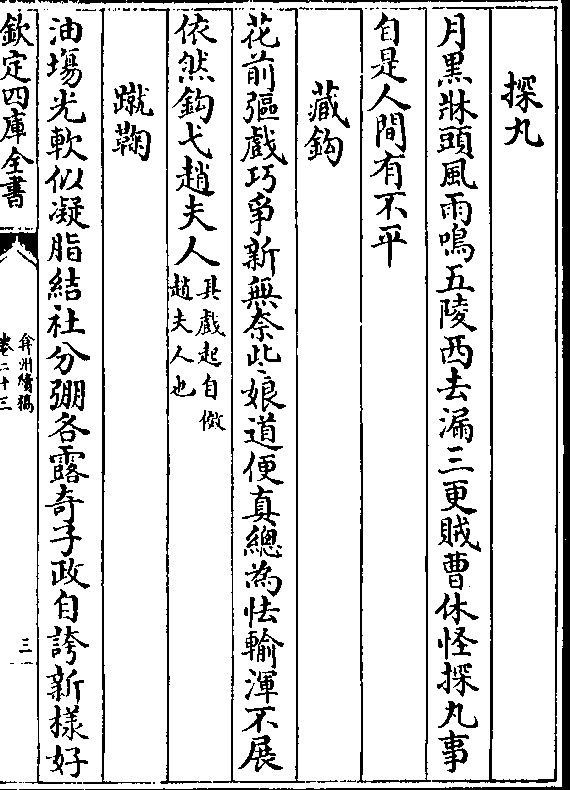 探丸
月黒牀頭風雨鳴五陵西去漏三更賊曹休怪探丸事
自是人間有不平
藏鈎
花前彄戲巧爭新無奈此娘道便真總為怯輸渾不展
依然鈎弋趙夫人其戲起自傚趙夫人也
蹴鞠
油塲光軟似凝脂結社分弸各露奇子政自誇新樣好
欽定四庫全書
弇州續稿
卷二十三
三